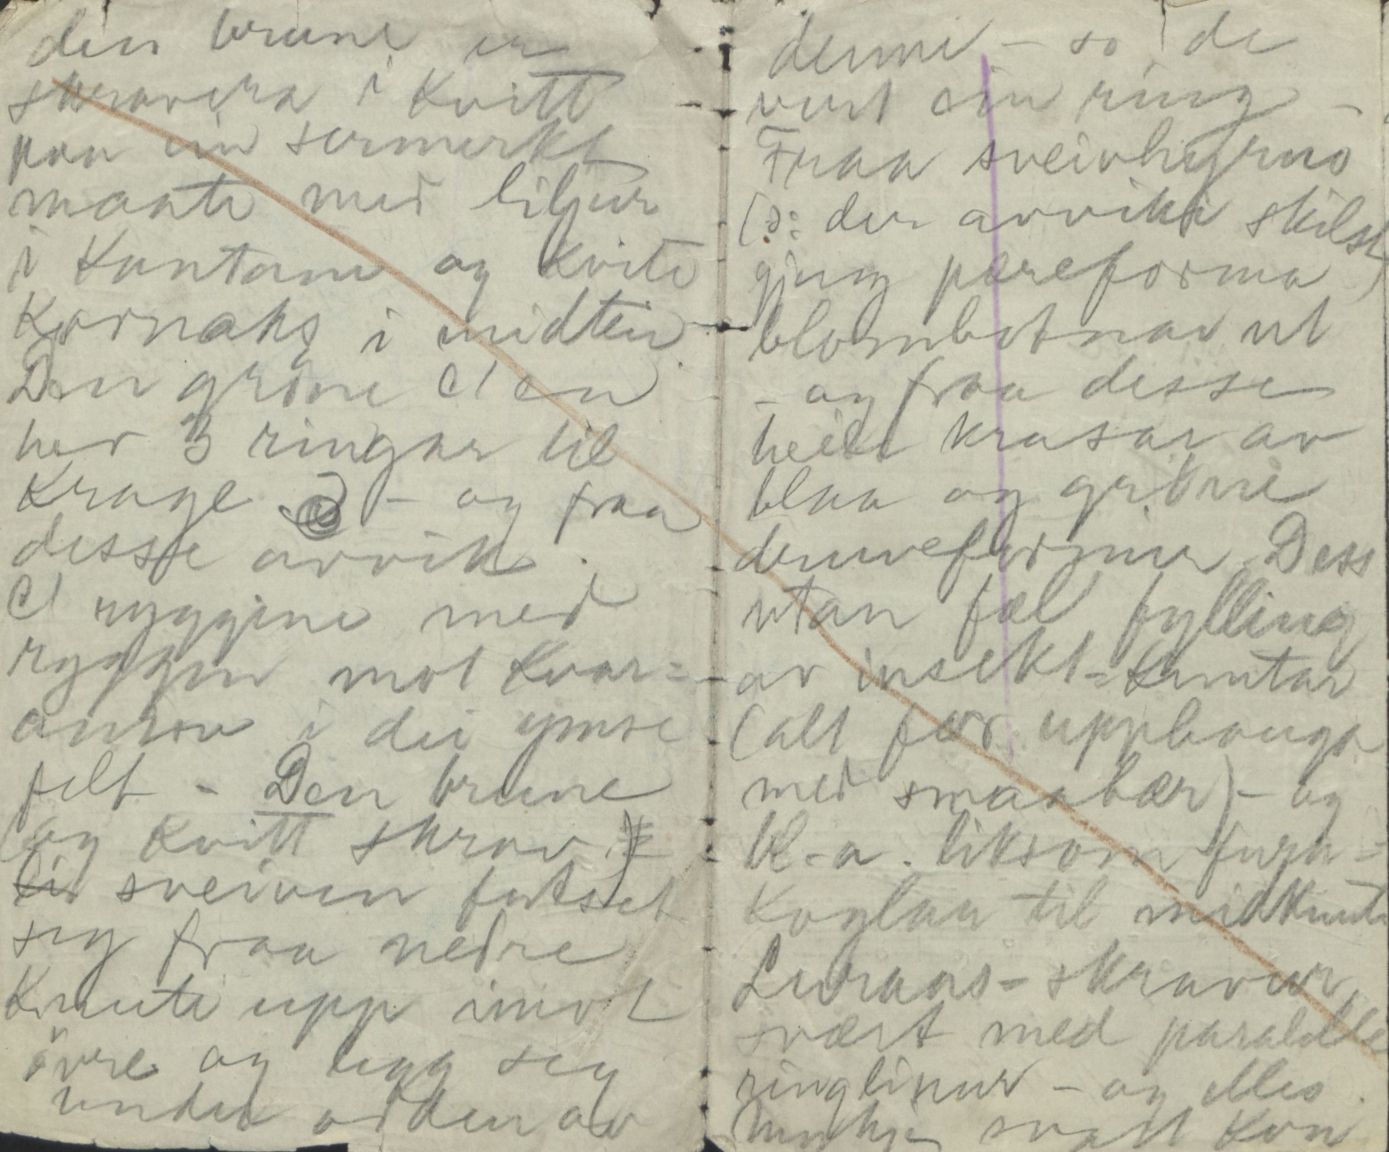 den brune er
skravera i kvitt
paa ein sermerkt
maate med liljur
i kantane og kvite
kornaks i midten
Den grøne C'en
her 3 ringar til
krage – og fraa
desse avvik.
C ryggene med
ryggen mot kvar=
andre i dei ymse
felt – Den brune
(og kvitt skrav.)
sveiven fortset
seg fraa nedre
knute upp imot
øvre og legg seg
under odden av
denne – so de
vert ein ring –
Fraa sveivhyrno
(ɔ: der avviki skilst)
gjeng pæreforma
blombotnar ut
– og fraa desse
heile krusar av
blaa og grøne
druveformer Dess
utan fæl fylling
av insekt=
(alt for upphauga
med smaabær) – og
bl.a. liksom furu=
koglar til midknute
Luraas-skravur
svært med paralelle
ringlinur – og elles
svart kon